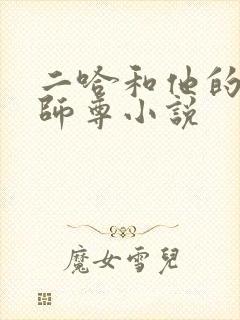 二哈和他的
師尊小説
魔女雪兒